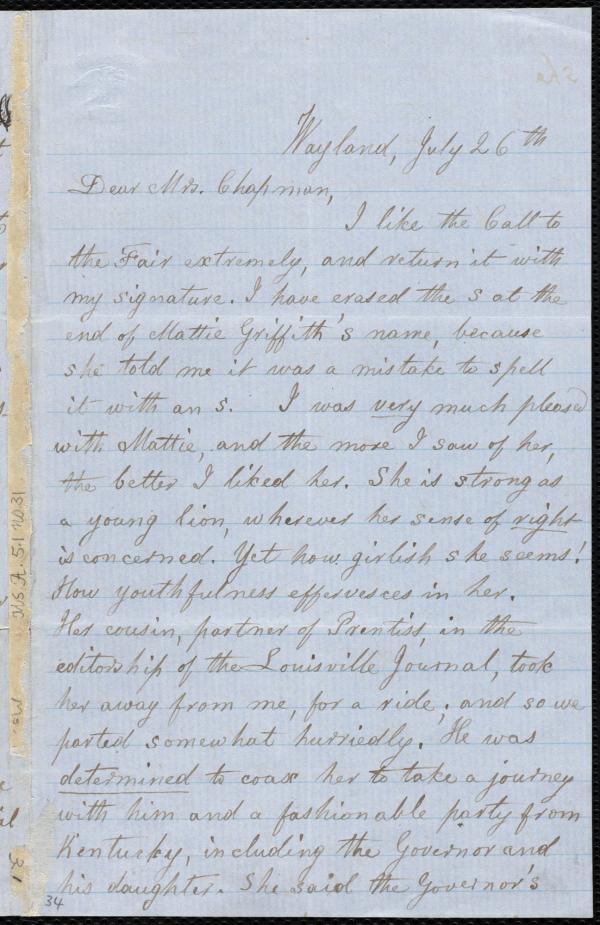 Wayland, July 26th
Dear Mrs. Chapman,
I like the Call to
the Fair extremely, and return it with
my signature. I have erased the s at the
end of Mattie Griffith's name, because
she told me it was a mistake to spell
it with an s. I was very much pleased
with Mattie, and the more I saw of her,
the better I liked her. She is strong as
a young lion, wherever her sense of right
is concerned. Yet how girlish she seems!
How youthfulness effervesces in her.
Her cousin, partner of Prentiss, in the
editorship of the Louisville Journal, took
her away from me, for a ride; and so we
parted somewhat hurriedly. He was
determined to coax her to take a journey
with him and a fashionable party from
Kentucky, including the Governor and
his daughter. She said the Governor's
34
Ms. A. 5.1 No 31